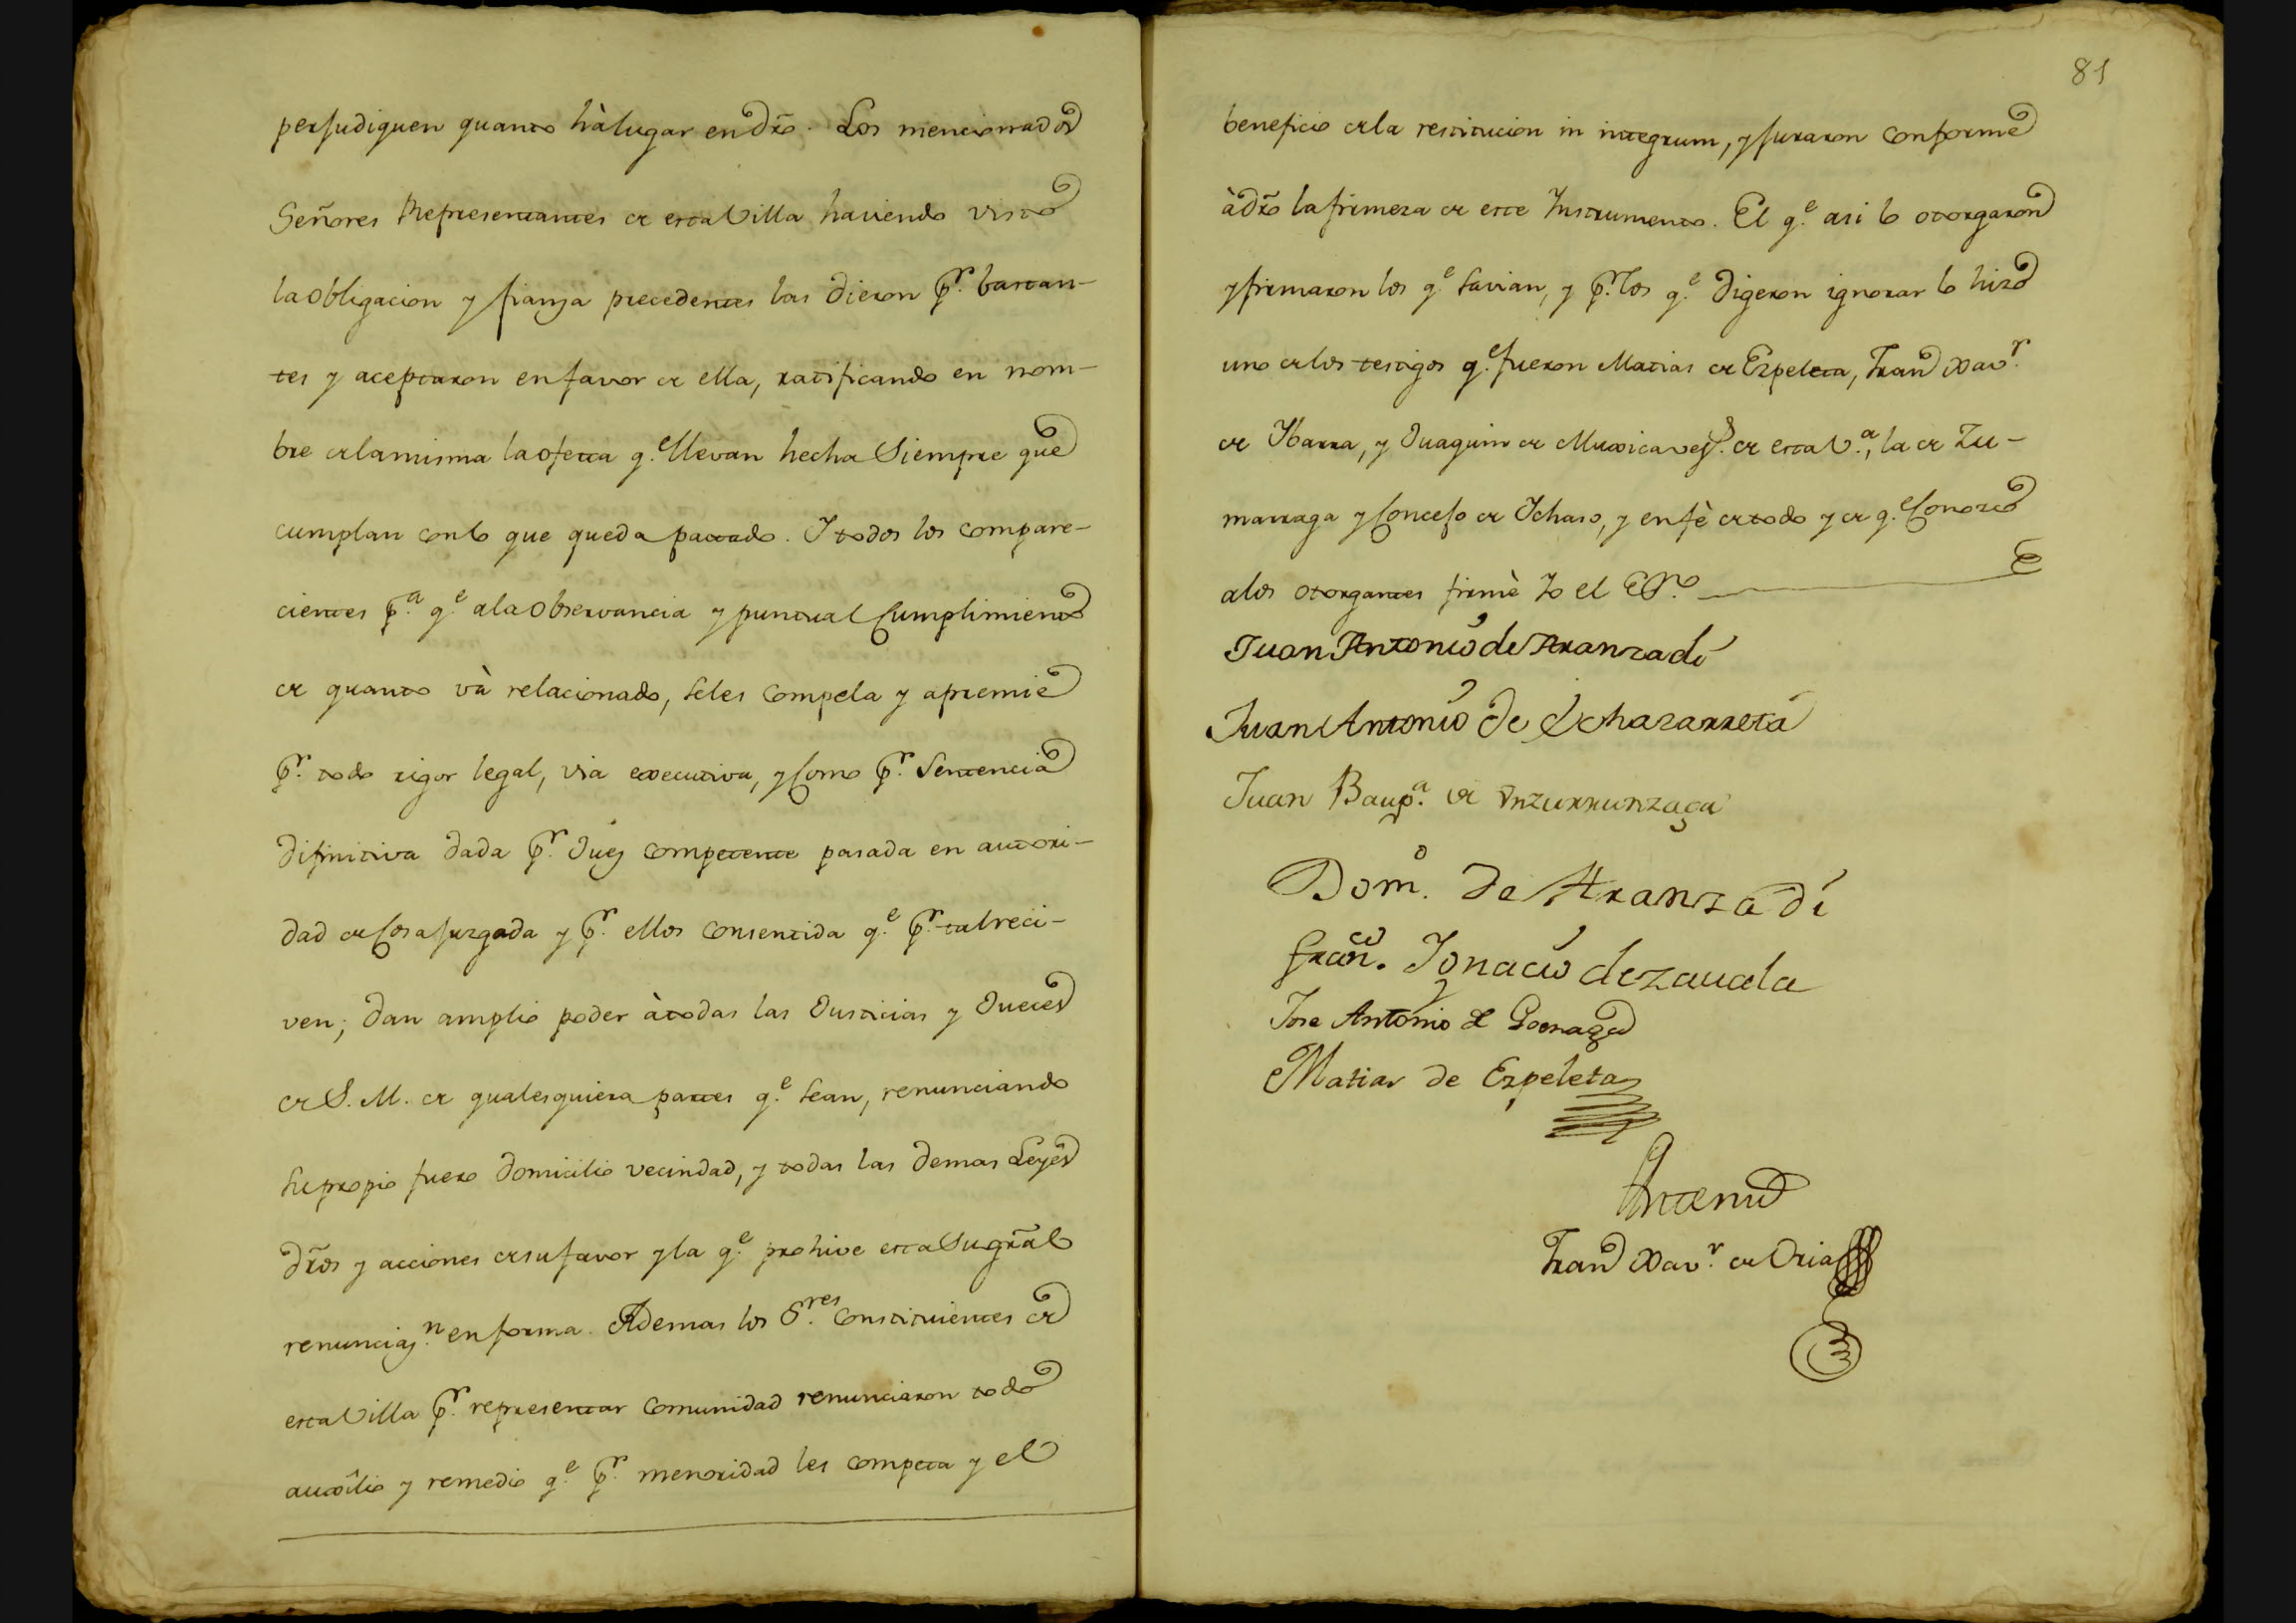 perjudiquen quanto hà lugar en dr̃o. Los mencionados
Señores Representantes de esta Villa haviendo visto
la obligacion y fianza precedentes las dieron pr. bastan-
tes y aceptaron en favor de ella, ratificando en nom-
bre de la misma la oferta q.e llevan hecha Siempre que
cumplan con lo que queda pactado. Y todos los compare-
cientes p.a q.e a la Observancia y puntual Cumplimiento
de quanto và relacionado, seles Compela y apremie
pr. todo rigor legal, via executiva, y Como pr. Sentencia
difinitiva dada pr. Juez Competente pasada en autori-
dad de Cosa juzgada y pr. ellos Consentida q.e pr. tal reci-
ven; dan amplio poder à todas las Justicias y Jueces
de S. M. de qualesquiera partes q.e sean, renunciando
su propio fuero domicilio vecindad, y todas las demas Leyes
dr̃os y acciones de su favor y la q.e prohive esta Su gr̃al
renunciaz.n en forma. Ademas los S.res Constituientes de
esta Villa pr. representar Comunidad renunciaron todo
auxîlio y remedio q.e pr. menoridad les competa y el
81
beneficio de la restitucion in integrum, y juraron Conforme
à dr̃o la firmeza de este Instrumento. El q.e asi lo otorgaron
y firmaron los q.e savian, y pr. los q.e digeron ignorar lo hizo
uno de los testigos q.e fueron Matias de Ezpeleta, Fran.co Xav.r
de Ybarra, y Juaquin de Muxica vez.s de esta V.a, la de Zu-
marraga y Concejo de Ychaso, y en fè de todo y de q.e Conozco
a los otorgantes firmè Yo el Es.no
Juan Antonio de Aranzadi
Juan Antonio de Echazarreta
Juan Baup.a de Inzurrunzaga
Dom.o de Aranzadi
Fran.co Ignacio de Zavala
Jose Antonio de
Matias de Ezpeleta
Antemi
Fran.co Xav.r de Oria